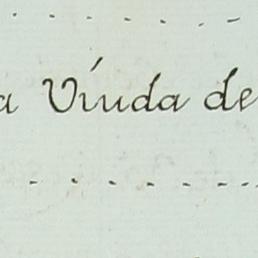 a Viuda de